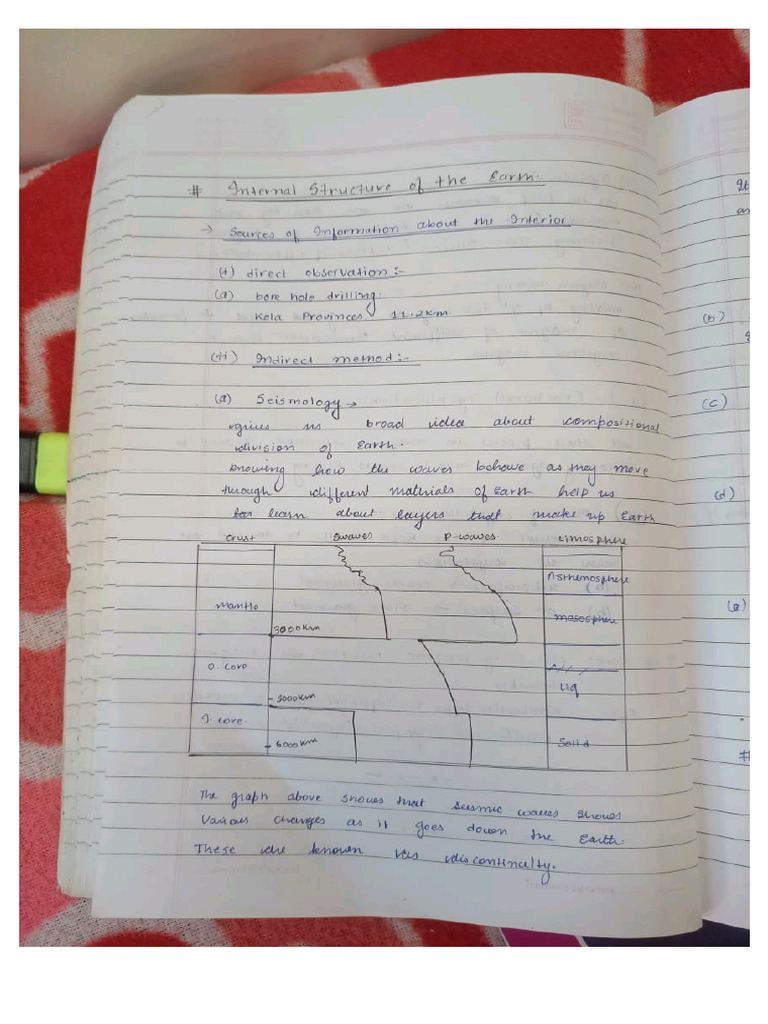 # Internal Structure of the Earth.
→ Sources of Information about the Interior
(i) direct observation:-
(a) bore hole drilling.
Kola Provinces 11.2km.
(ii) Indirect method:-
(a) Seismology →
gives us broad idea about compositional
division of Earth.
knowing how the waves behave as they move
through different materials of Earth help us
to learn about layers that make up Earth
Crust Swaves P-waves Limosphere
Asthemosphere
Mantle mesosphere
3000Km
O. core
Liq
5000Km
I. core
6000Km Solid
The graph above shows that seismic waves shows
Various changes as it goes down the Earth.
These are known as discontinuity.
It
an
(b)
(c)
(d)
(e)
#